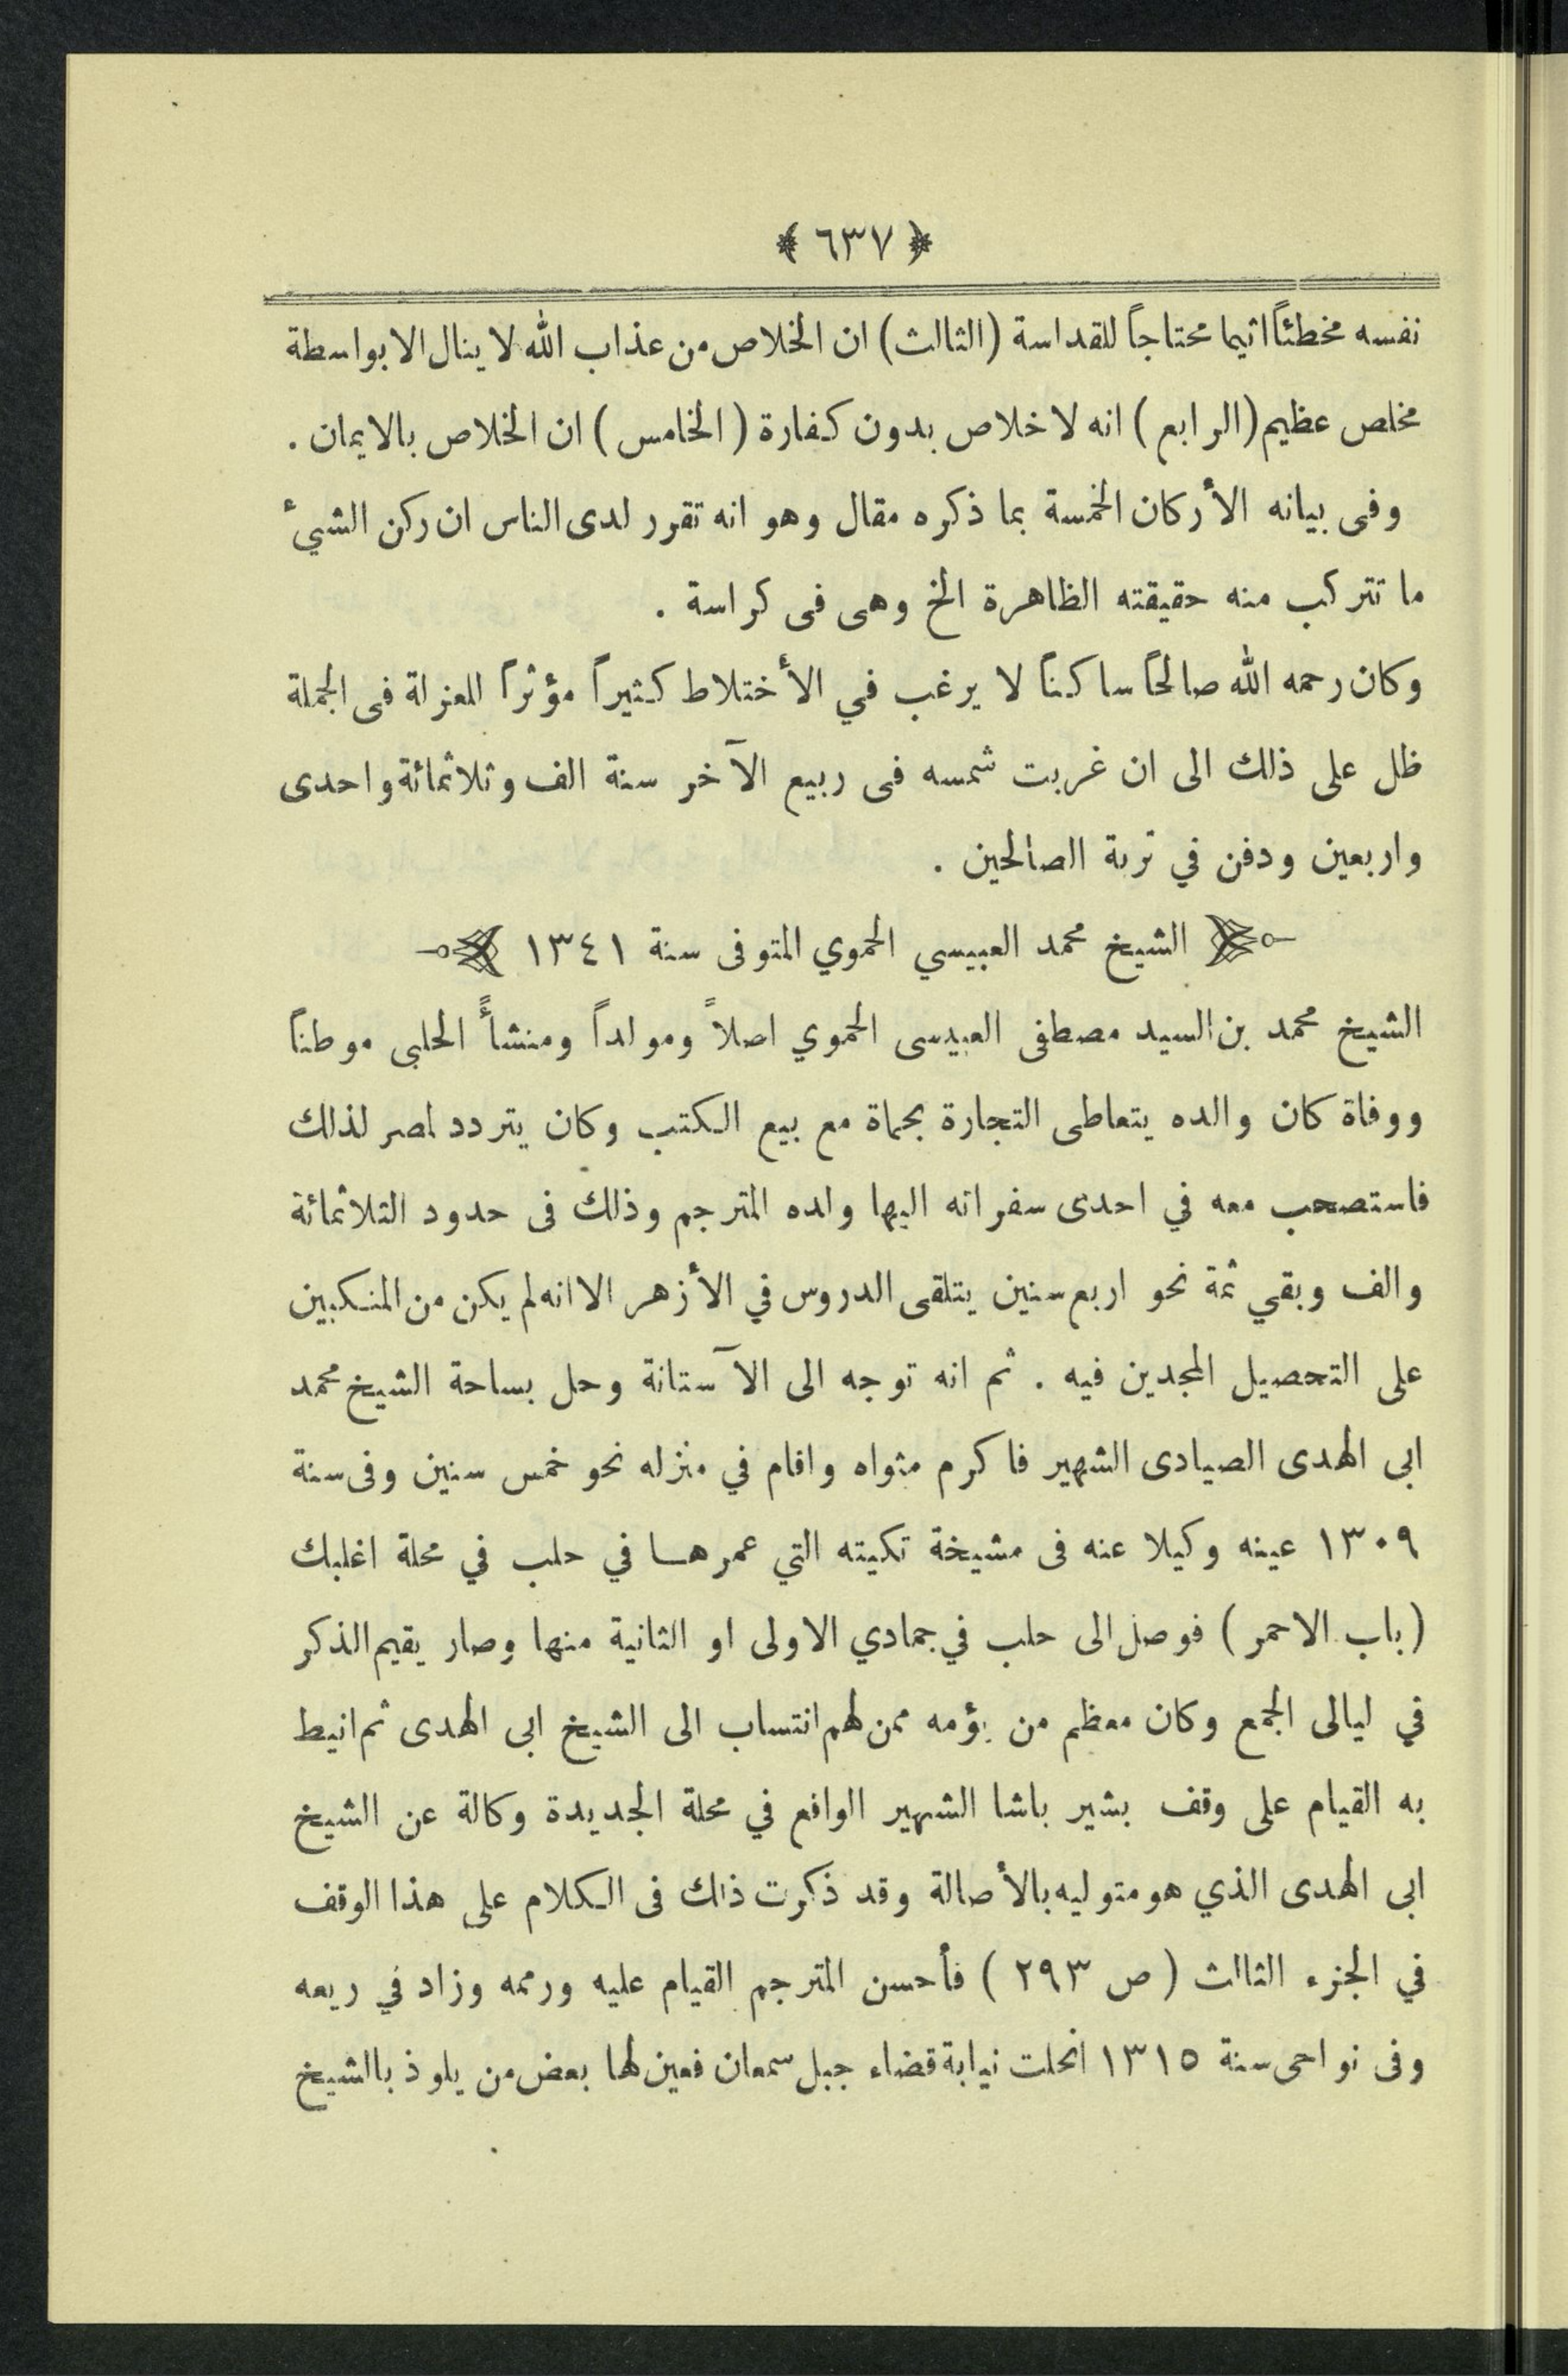 ﴿ ٦٣٧ ﴾
نفسه مخطئاً اثيما محتاجاً للقداسة (الثالث) ان الخلاص من عذاب الله لا ينال الا بواسطة
مخلص عظيم (الرابع) انه لا خلاص بدون كفارة (الخامس) ان الخلاص بالايمان .
وفى بيانه الأركان الخمسة بما ذكره مقال وهو انه تقرر لدى الناس ان ركن الشيء
ما تتركب منه حقيقته الظاهرة الخ وهى فى كراسة .
وكان رحمه الله صالحاً ساكناً لا يرغب في الأختلاط كثيراً مؤثراً للعزلة فى الجملة
ظل على ذلك الى ان غربت شمسه فى ربيع الآخر سنة الف وثلاثمائة واحدى
واربعين ودفن في تربة الصالحين .
الشيخ محمد العبيسي الحموي المتوفى سنة ١٣٤١
الشيخ محمد بن السيد مصطفى العبيسى الحموي اصلاً ومولداً ومنشأً الحلبى موطناً
ووفاة كان والده يتعاطى التجارة بحماة مع بيع الكتب وكان يتردد لمصر لذلك
فاستصحب معه في احدى سفراته اليها ولده المترجم وذلك فى حدود الثلاثمائة
والف وبقي ثمة نحو اربع سنين يتلقى الدروس في الأزهر الا انه لم يكن من المنكبين
على التحصيل المجدين فيه . ثم انه توجه الى الآستانة وحل بساحة الشيخ محمد
ابى الهدى الصيادى الشهير فاكرم مثواه واقام في منزله نحو خمس سنين وفى سنة
١٣٠٩ عينه وكيلا عنه فى مشيخة تكيته التي عمرها في حلب في محلة اغلبك
(باب الاحمر) فوصل الى حلب في جمادي الاولى او الثانية منها وصار يقيم الذكر
في ليالى الجمع وكان معظم من يؤمه ممن لهم انتساب الى الشيخ ابى الهدى ثم انيط
به القيام على وقف بشير باشا الشهير الواقع في محلة الجديدة وكالة عن الشيخ
ابى الهدى الذي هو متوليه بالأصالة وقد ذكرت ذلك فى الكلام على هذا الوقف
في الجزء الثالث (ص ٢٩٣) فأحسن المترجم القيام عليه ورممه وزاد في ريعه
وفى نواحى سنة ١٣١٥ انحلت نيابة قضاء جبل سمعان فعين لها بعض من يلوذ بالشيخ